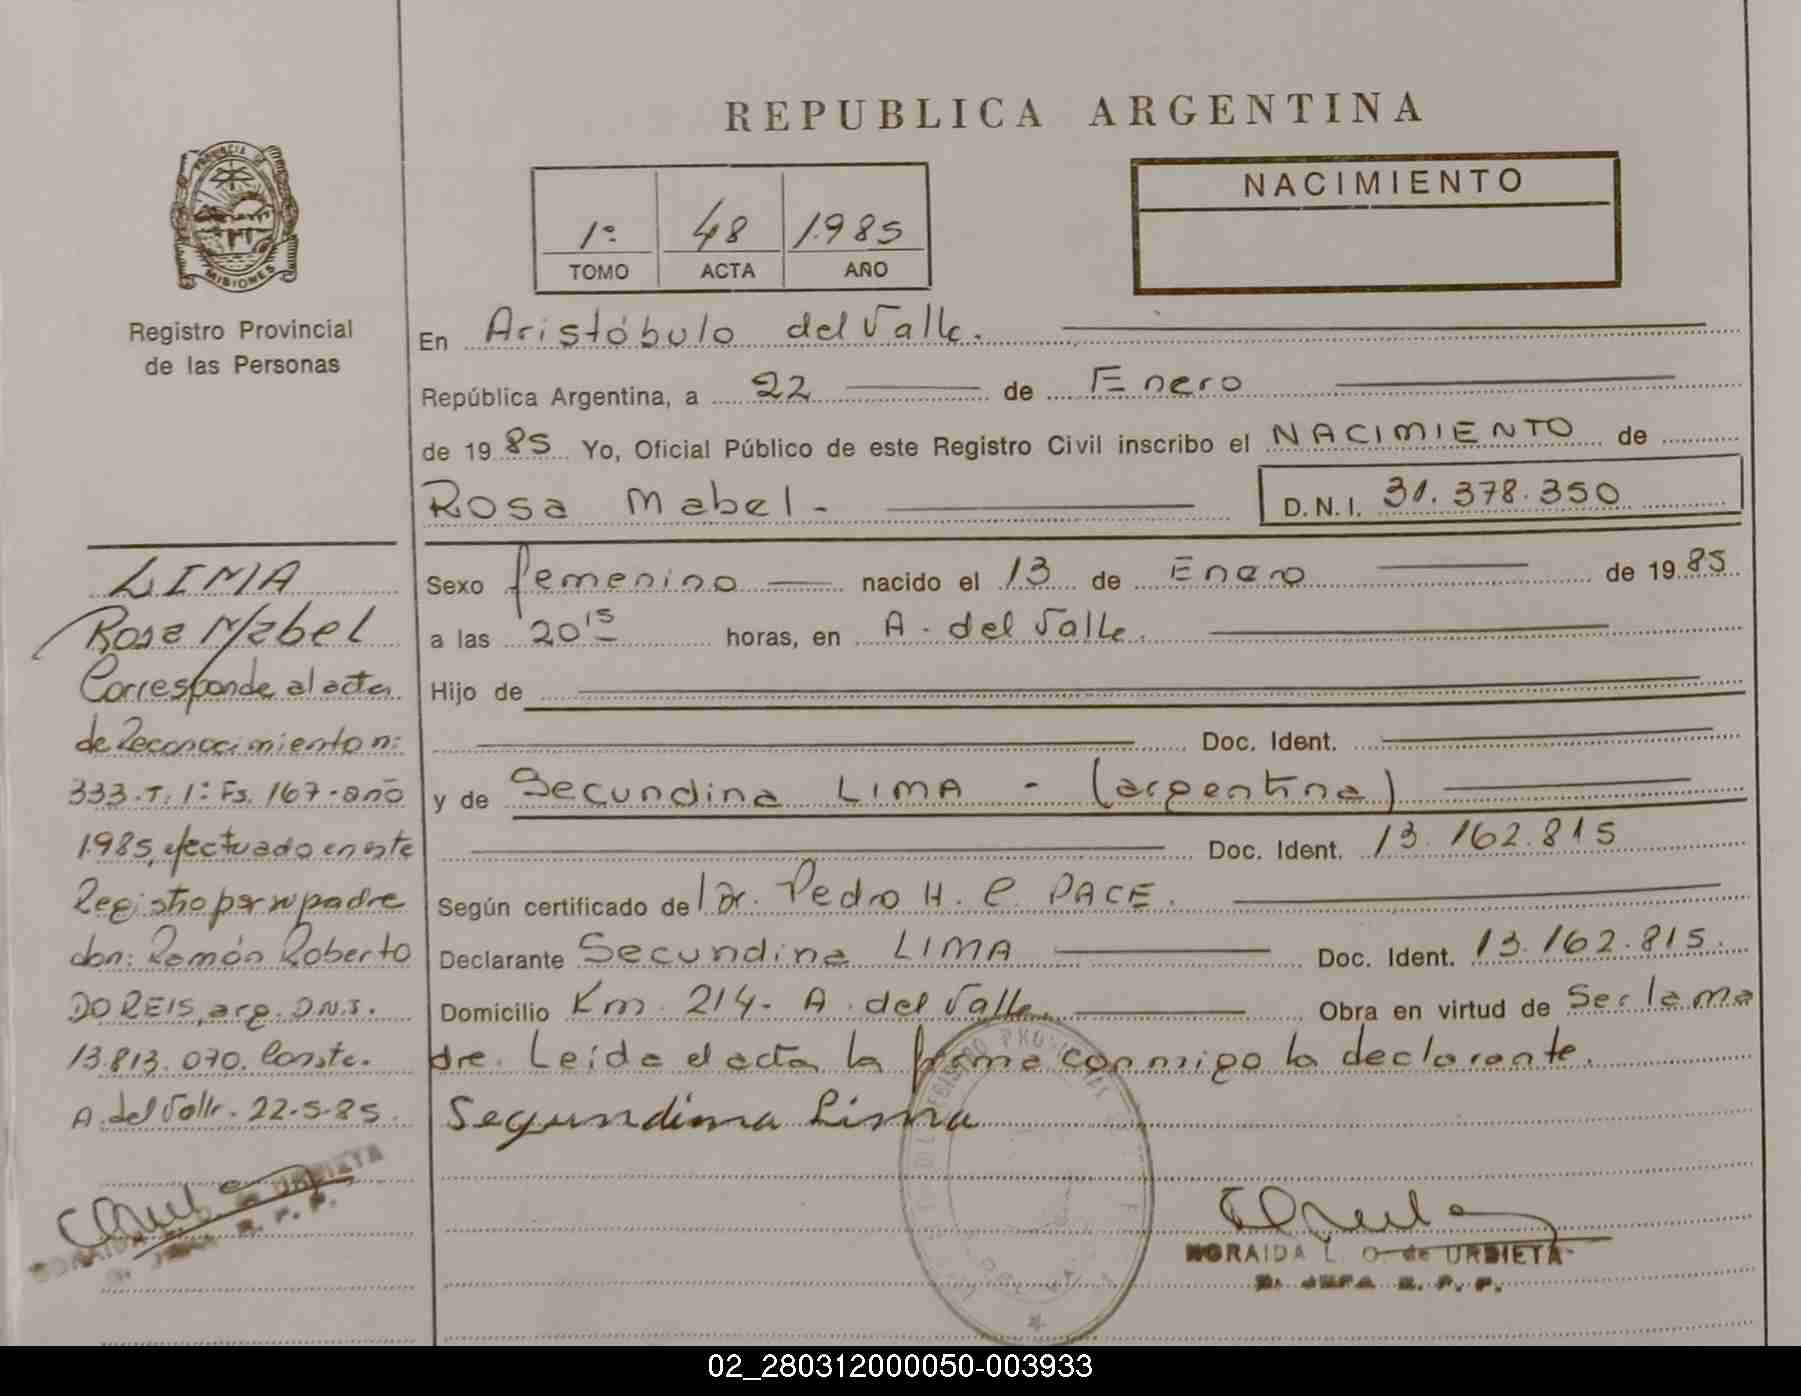 REPUBLICA ARGENTINA
PROVINCIA DE
MISIONES
Registro Provincial
de las Personas
1º 48 1.985
TOMO ACTA AÑO
NACIMIENTO
En Aristóbulo del Valle.
República Argentina, a 22 de Enero
de 1985 Yo, Oficial Público de este Registro Civil inscribo el NACIMIENTO de
Rosa Mabel - D.N.I. 31.378.350
Sexo femenino nacido el 13 de Enero de 1985
a las 20 15 horas, en A. del Valle.
Hijo de
Doc. Ident.
y de Secundina LIMA - (argentina)
Doc. Ident. 13.162.815
Según certificado del Dr. Pedro H. C. PACE.
Declarante Secundina LIMA Doc. Ident. 13.162.815.
Domicilio Km. 214- A. del Valle. Obra en virtud de Ser la ma
dre. Leida el acta la firma conmigo la declarante.
Segundima Lima
NORAIDA L. O. de URBIETA
D. JEFA R. P. P.
LIMA
Rosa Mabel
Corresponde al acta
de Reconocimiento n:
333.T. 1º Fs. 167-año
1985, efectuado en este
Registro por su padre
don: Ramón Roberto
DO REIS, arg. D.N.I.
13.813.070. Conste.
A. del Valle. 22-5-85.
de URBIETA
JEFA R. P. P.
02_280312000050-003933